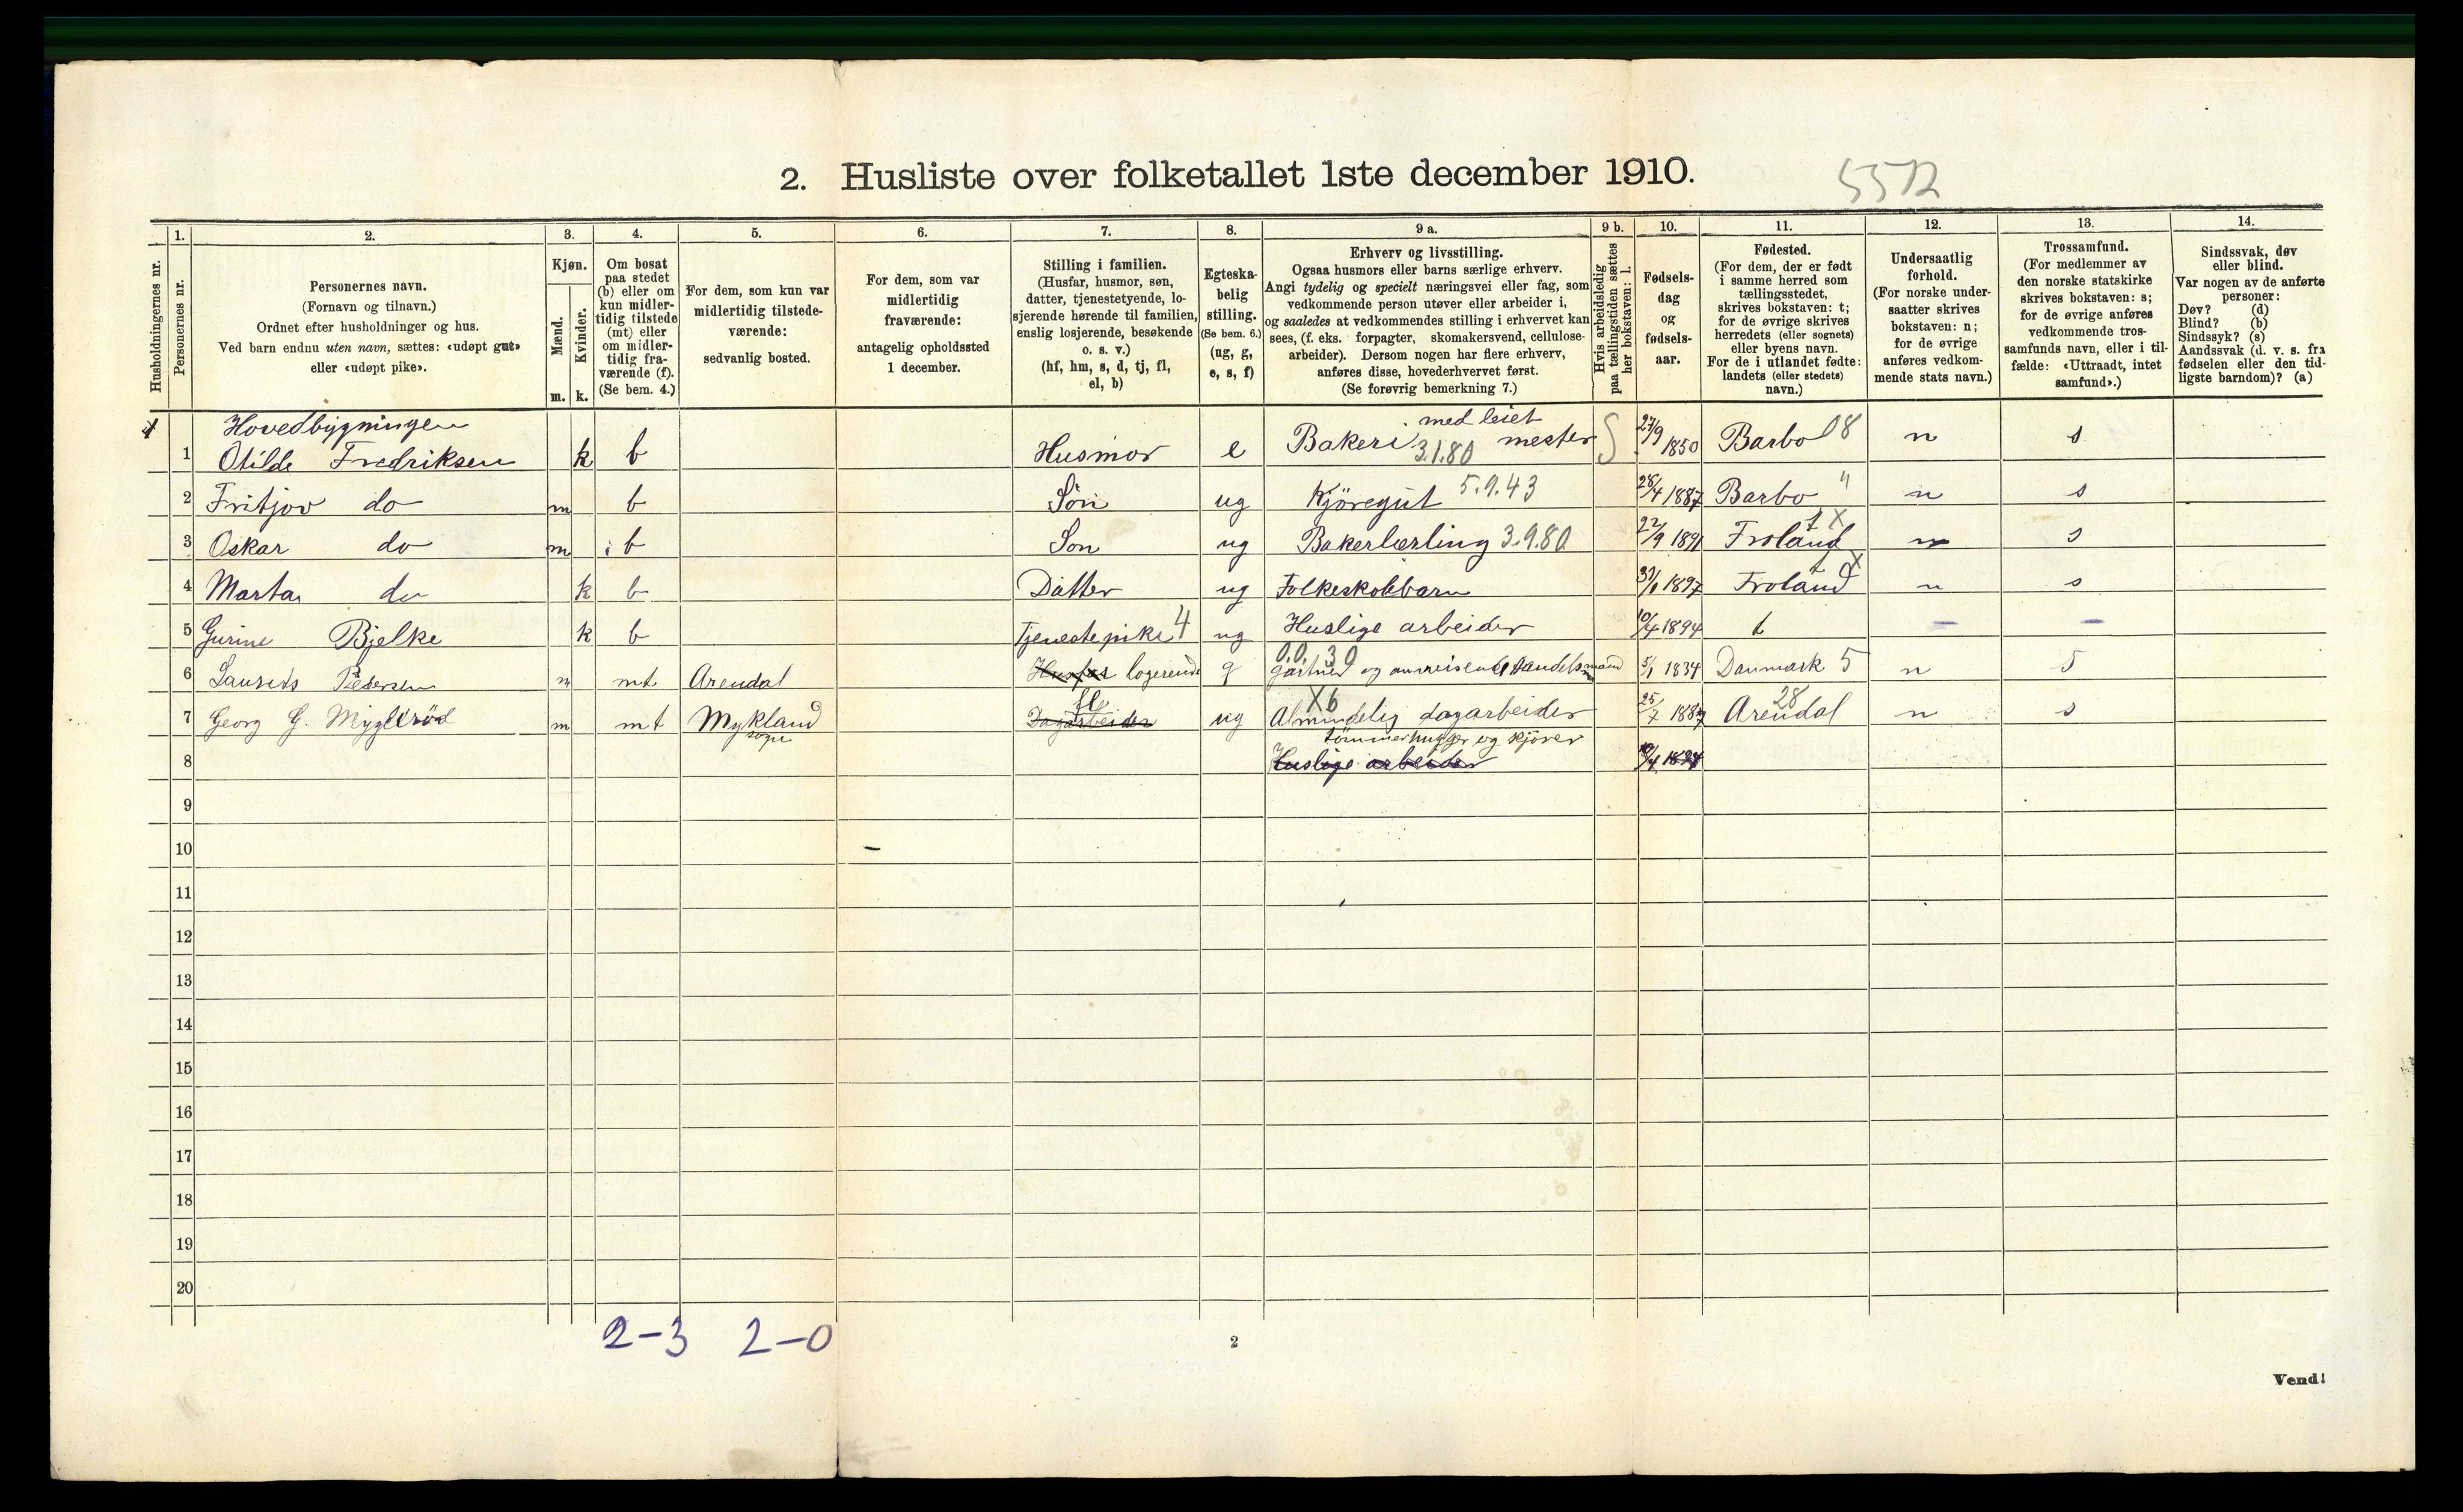 2. Husliste over folketallet 1ste december 1910.
5572
Husholdningernes nr.
1.
Personernes nr.
2.
Personernes navn.
(Fornavn og tilnavn.)
Ordnet efter husholdninger og hus.
Ved barn endnu uten navn, sættes: «udøpt gut»
eller «udøpt pike».
3.
Kjøn.
Mænd.
Kvinder.
m. k.
4.
Om bosat
paa stedet
(b) eller om
kun midler-
tidig tilstede
(mt) eller
om midler-
tidig fra-
værende (f).
(Se bem. 4.)
5.
For dem, som kun var
midlertidig tilstede-
værende:
sedvanlig bosted.
6.
For dem, som var
midlertidig
fraværende:
antagelig opholdssted
1 december.
7.
Stilling i familien.
(Husfar, husmor, søn,
datter, tjenestetyende, lo-
sjerende hørende til familien,
enslig losjerende, besøkende
o. s. v.)
(hf, hm, s, d, tj, fl,
el, b)
8.
Egteska-
belig
stilling.
(Se bem. 6.)
(ug, g,
e, s, f)
9 a.
Erhverv og livsstilling.
Ogsaa husmors eller barns særlige erhverv.
Angi tydelig og specielt næringsvei eller fag, som
vedkommende person utøver eller arbeider i,
og saaledes at vedkommendes stilling i erhvervet kan
sees, (f. eks. forpagter, skomakersvend, cellulose-
arbeider). Dersom nogen har flere erhverv,
anføres disse, hovederhvervet først.
(Se forøvrig bemerkning 7.)
9 b.
Hvis arbeidsledig
paa tællingstiden sættes
her bokstaven: l.
10.
Fødsels-
dag
og
fødsels-
aar.
11.
Fødested.
(For dem, der er født
i samme herred som
tællingsstedet,
skrives bokstaven: t;
for de øvrige skrives
herredets (eller sognets)
eller byens navn.
For de i utlandet fødte:
landets (eller stedets)
navn.)
12.
Undersaatlig
forhold.
(For norske under-
saatter skrives
bokstaven: n;
for de øvrige
anføres vedkom-
mende stats navn.)
13.
Trossamfund.
(For medlemmer av
den norske statskirke
skrives bokstaven: s;
for de øvrige anføres
vedkommende tros-
samfunds navn, eller i til-
fælde: «Uttraadt, intet
samfund».)
14.
Sindssvak, døv
eller blind.
Var nogen av de anførte
personer:
Døv? (d)
Blind? (b)
Sindssyk? (s)
Aandssvak (d. v. s. fra
fødselen eller den tid-
ligste barndom)? (a)
Hovedbygningen
1 Otilde Fredriksen k b Husmor e Bakeri med leiet mester 3.1.80 S 27/9 1850 Barbo 08 n s
2 Fritjov do m b Søn ug Kjöregut 5.9.43 28/4 1887 Barbo " n s
3 Oskar do m b Søn ug Bakerlærling 3.9.80 22/9 1891 Froland t X n s
4 Marta do k b Datter ug Folkeskolebarn 31/1 1897 Froland t X n s
5 Gurine Bjelke k b Tjenestepike 4 ug Huslige arbeider 10/4 1894 t - -
6 Laurits Pedersen m mt Arendal Husfar logerende g 0.0.39 gartner og omreisende Handelsmand 5/1 1834 Danmark 5 n S
7 Georg G. m mt Mykland sogn Dagarbeider fl ug X6 Almindelig dagarbeider 25/7 1887 Arendal 28 n s
tømmerhugger og kjører
8 Huslige arbeider 10/4 1894
9
10
11
12
13
14
15
16
17
18
19
20
2-3 2-0
2
Vend!